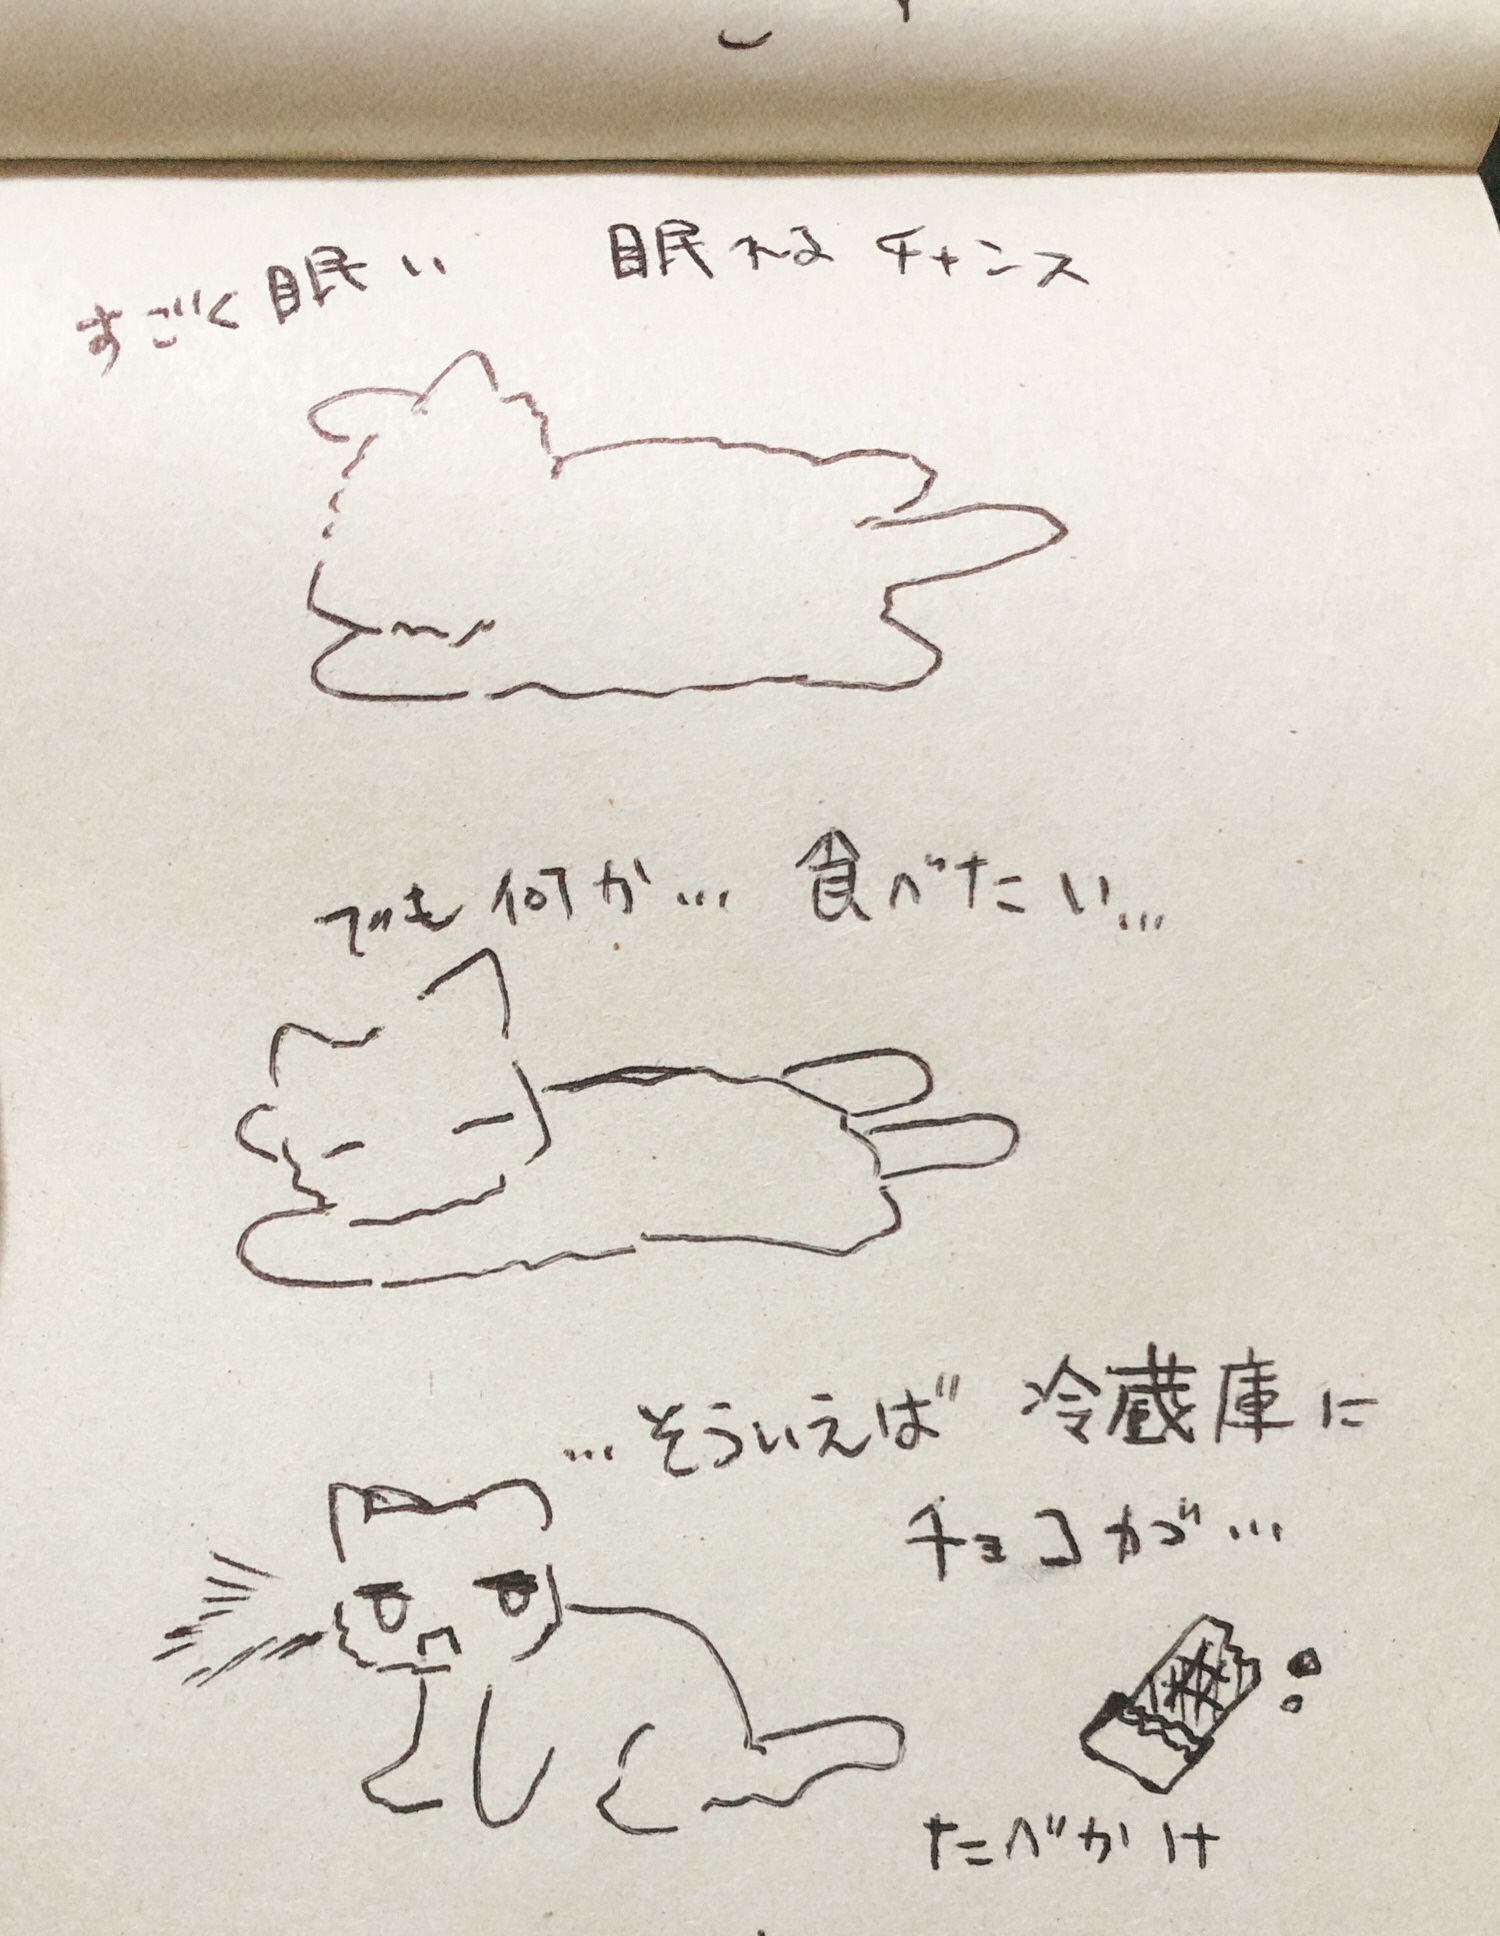 すごく眠い 眠れるチャンス
でも何か… 食べたい…
…そういえば 冷蔵庫に
チョコがず…
たべかけ